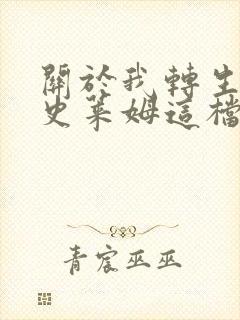 關於我轉生
史萊姆這檔
青宸巫巫